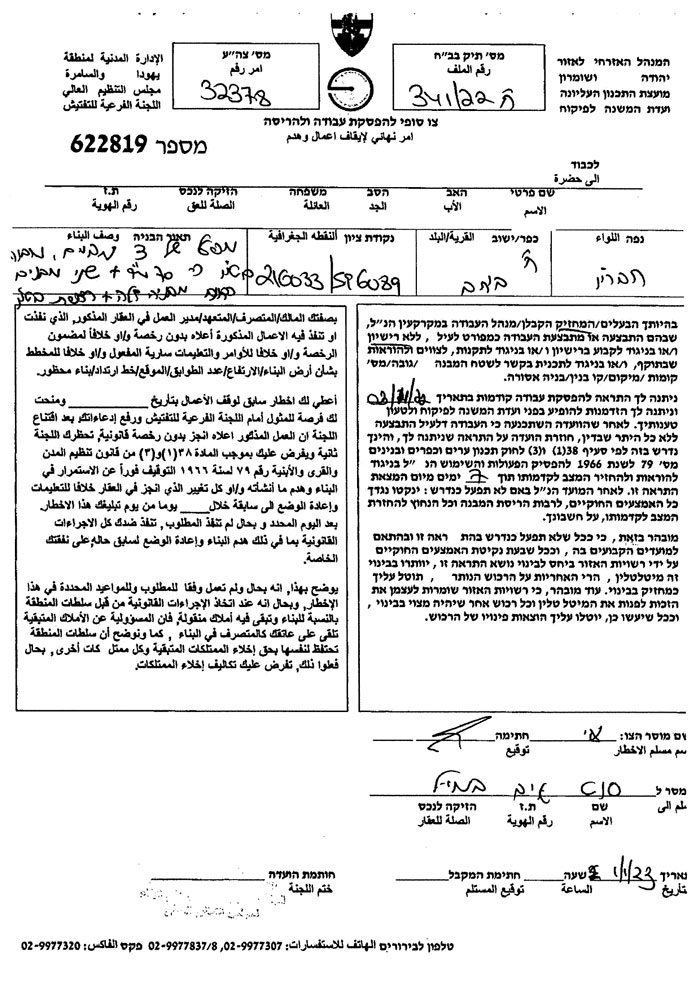 המנהל האזרחי לאזור
יהודה ושומרון
מועצת התכנון העליונה
ועדת המשנה לפיקוח
מס׳ תיק בב״ח
رقم الملف
ח 341/22
מס׳ צה״ע
امر رقم
32378
الإدارة المدنية لمنطقة
يهودا والسامرة
مجلس التنظيم العالي
اللجنة الفرعية للتفتيش
צו סופי להפסקת עבודה ולהריסה
امر نهائي لإيقاف اعمال وهدم
מספר 622819
לכבוד
الى حضرة
שם פרטי האב הסב משפחה הזיקה לנכס ת.ז
الاسم الأب الجد العائلة الصلة للعق رقم الهوية
נפה اللواء
חברון
כפר/ישוב القرية/البلد
נקודת ציון النقطه الجغرافية
216033/596039
תאור הבניה وصف البناء
בהיותך הבעלים/המחזיק הקבלן/מנהל העבודה במקרקעין הנ״ל,
שבהם התבצעה או מתבצעת העבודה כמפורט לעיל, ללא רישיון
ו/או בניגוד לקבוע ברישיון ו/או בניגוד לתקנות, לצווים ולהוראות
שבתוקף, ו/או בניגוד לתכנית בקשר לשטח המבנה /גובה/מס׳
קומות /מיקום/קו בנין/בניה אסורה.
ניתנה לך התראה להפסקת עבודה קודמות בתאריך
וניתנה לך הזדמנות להופיע בפני ועדת המשנה לפיקוח ולטעון
טענותיך. לאחר שהוועדה השתכנעה כי העבודה דלעיל התבצעה
ללא כל היתר שבדין, חוזרת הועדה על התראה שניתנה לך, והינך
נדרש בזה לפי סעיף 38(1) ו(3) לחוק תכנון ערים וכפרים ובנינים
מס׳ 79 לשנת 1966 להפסיק הפעולות והשימוש הנ ״ל בניגוד
להוראות ולהחזיר המצב לקדמותו תוך 7 ימים מיום המצאת
התראה זו. לאחר המועד הנ״ל באם לא תפעל כנדרש: ינקטו נגדך
כל האמצעים החוקיים, לרבות הריסת המבנה וכל הנחוץ להחזרת
המצב לקדמותו, על חשבונך.
מובהר בזאת, כי ככל שלא תפעל כנדרש בהת ראה זו ובהתאם
למועדים הקבועים בה , וככל שבעת נקיטת האמצעים החוקיים
על ידי רשויות האזור ביחס לבינוי נושא התראה זו , יוותרו בבינוי
זה מיטלטלין , הרי האחריות על הרכוש הנותר , תוטל עליך
כמחזיק בבינוי. עוד מובהר, כי רשויות האזור שומרות לעצמן את
הזכות לפנות את המיטל טלין וכל רכוש אחר שיהיה מצוי בבינוי ,
וככל שיעשו כן, יוטלו עליך הוצאות פינויו של הרכוש.
بصفتك المالك/المتصرف/المتعهد/مدير العمل في العقار المذكور, الذي نفذت
او تنفذ فيه الاعمال المذكورة أعلاه بدون رخصة و/او خلافاً لمضمون
الرخصة و/او خلافا للأوامر والتعليمات سارية المفعول و/او خلافا للمخطط
بشأن أرض البناء/الارتفاع/عدد الطوابق/الموقع/خط ارتداد/بناء محظور.
أعطي لك اخطار سابق لوقف الأعمال بتاريخ ومنحت
لك فرصة للمثول أمام اللجنة الفرعية للتفتيش ورفع إدعاءاتك بعد اقتناع
اللجنة ان العمل المذكور اعلاه انجز بدون رخصة قانونية, تحظرك اللجنة
ثانية ويفرض عليك بموجب المادة ٣٨(١)و(٣) من قانون تنظيم المدن
والقرى والأبنية رقم ٧٩ لسنة ١٩٦٦ التوقيف فوراً عن الاستمرار في
البناء وهدم ما أنشأته و/او كل تغيير الذي انجز في العقار خلافا للتعليمات
وإعادة الوضع الى سابقة خلال يوما من يوم تبليغك هذا الاخطار.
بعد اليوم المحدد و بحال لم تنفذ المطلوب, تنفذ ضدك كل الاجراءات
القانونية بما في ذلك هدم البناء وإعادة الوضع لسابق حاله, على نفقتك
الخاصة.
يوضح بهذا, انه بحال ولم تعمل وفقا للمطلوب وللمواعيد المحددة في هذا
الإخطار, وبحال انه عند اتخاذ الإجراءات القانونية من قبل سلطات المنطقة
بالنسبة للبناء وتبقى فيه أملاك منقولة, فان المسؤولية عن الأملاك المتبقية
تلقى على عاتقك كالمتصرف في البناء , كما ونوضح أن سلطات المنطقة
تحتفظ لنفسها بحق إخلاء الممتلكات المتبقية وكل ممتل كات أخرى, بحال
فعلوا ذلك, تفرض عليك تكاليف إخلاء الممتلكات.
ום מוסר הצו: חתימה
سم مسلم الاخطار توقيع
מסר ל
سلم الى
שם ת.ז הזיקה לנכס
الاسم رقم الهوية الصلة للعقار
תאריך 1/1/23 שעה חתימת המקבל חותמת הועדה
تأريخ الساعة توقيع المستلم ختم اللجنة
טלפון לבירורים الهاتف للاستفسارات: 02-9977307, 02-9977837/8 פקס الفاكس: 02-9977320